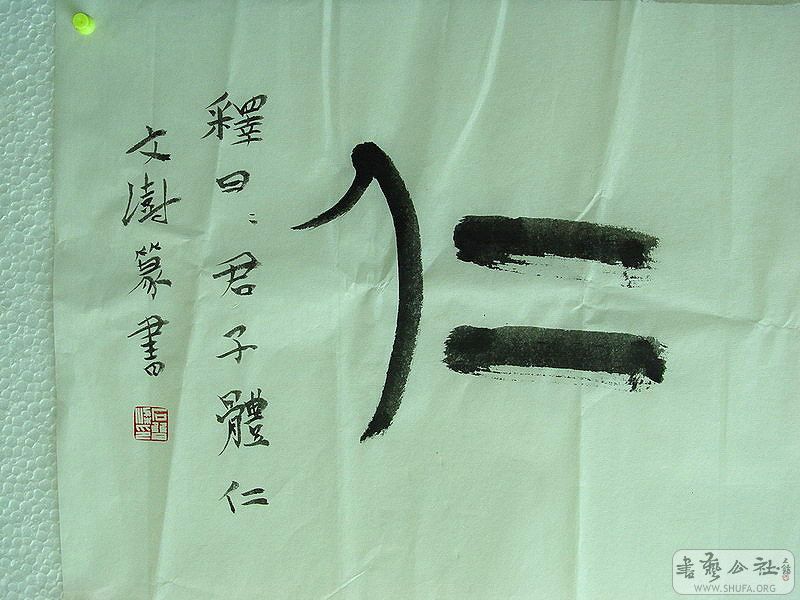 仁
釋曰：君子體仁
文澍篆書
書藝公社
WWW.SHUFA.ORG